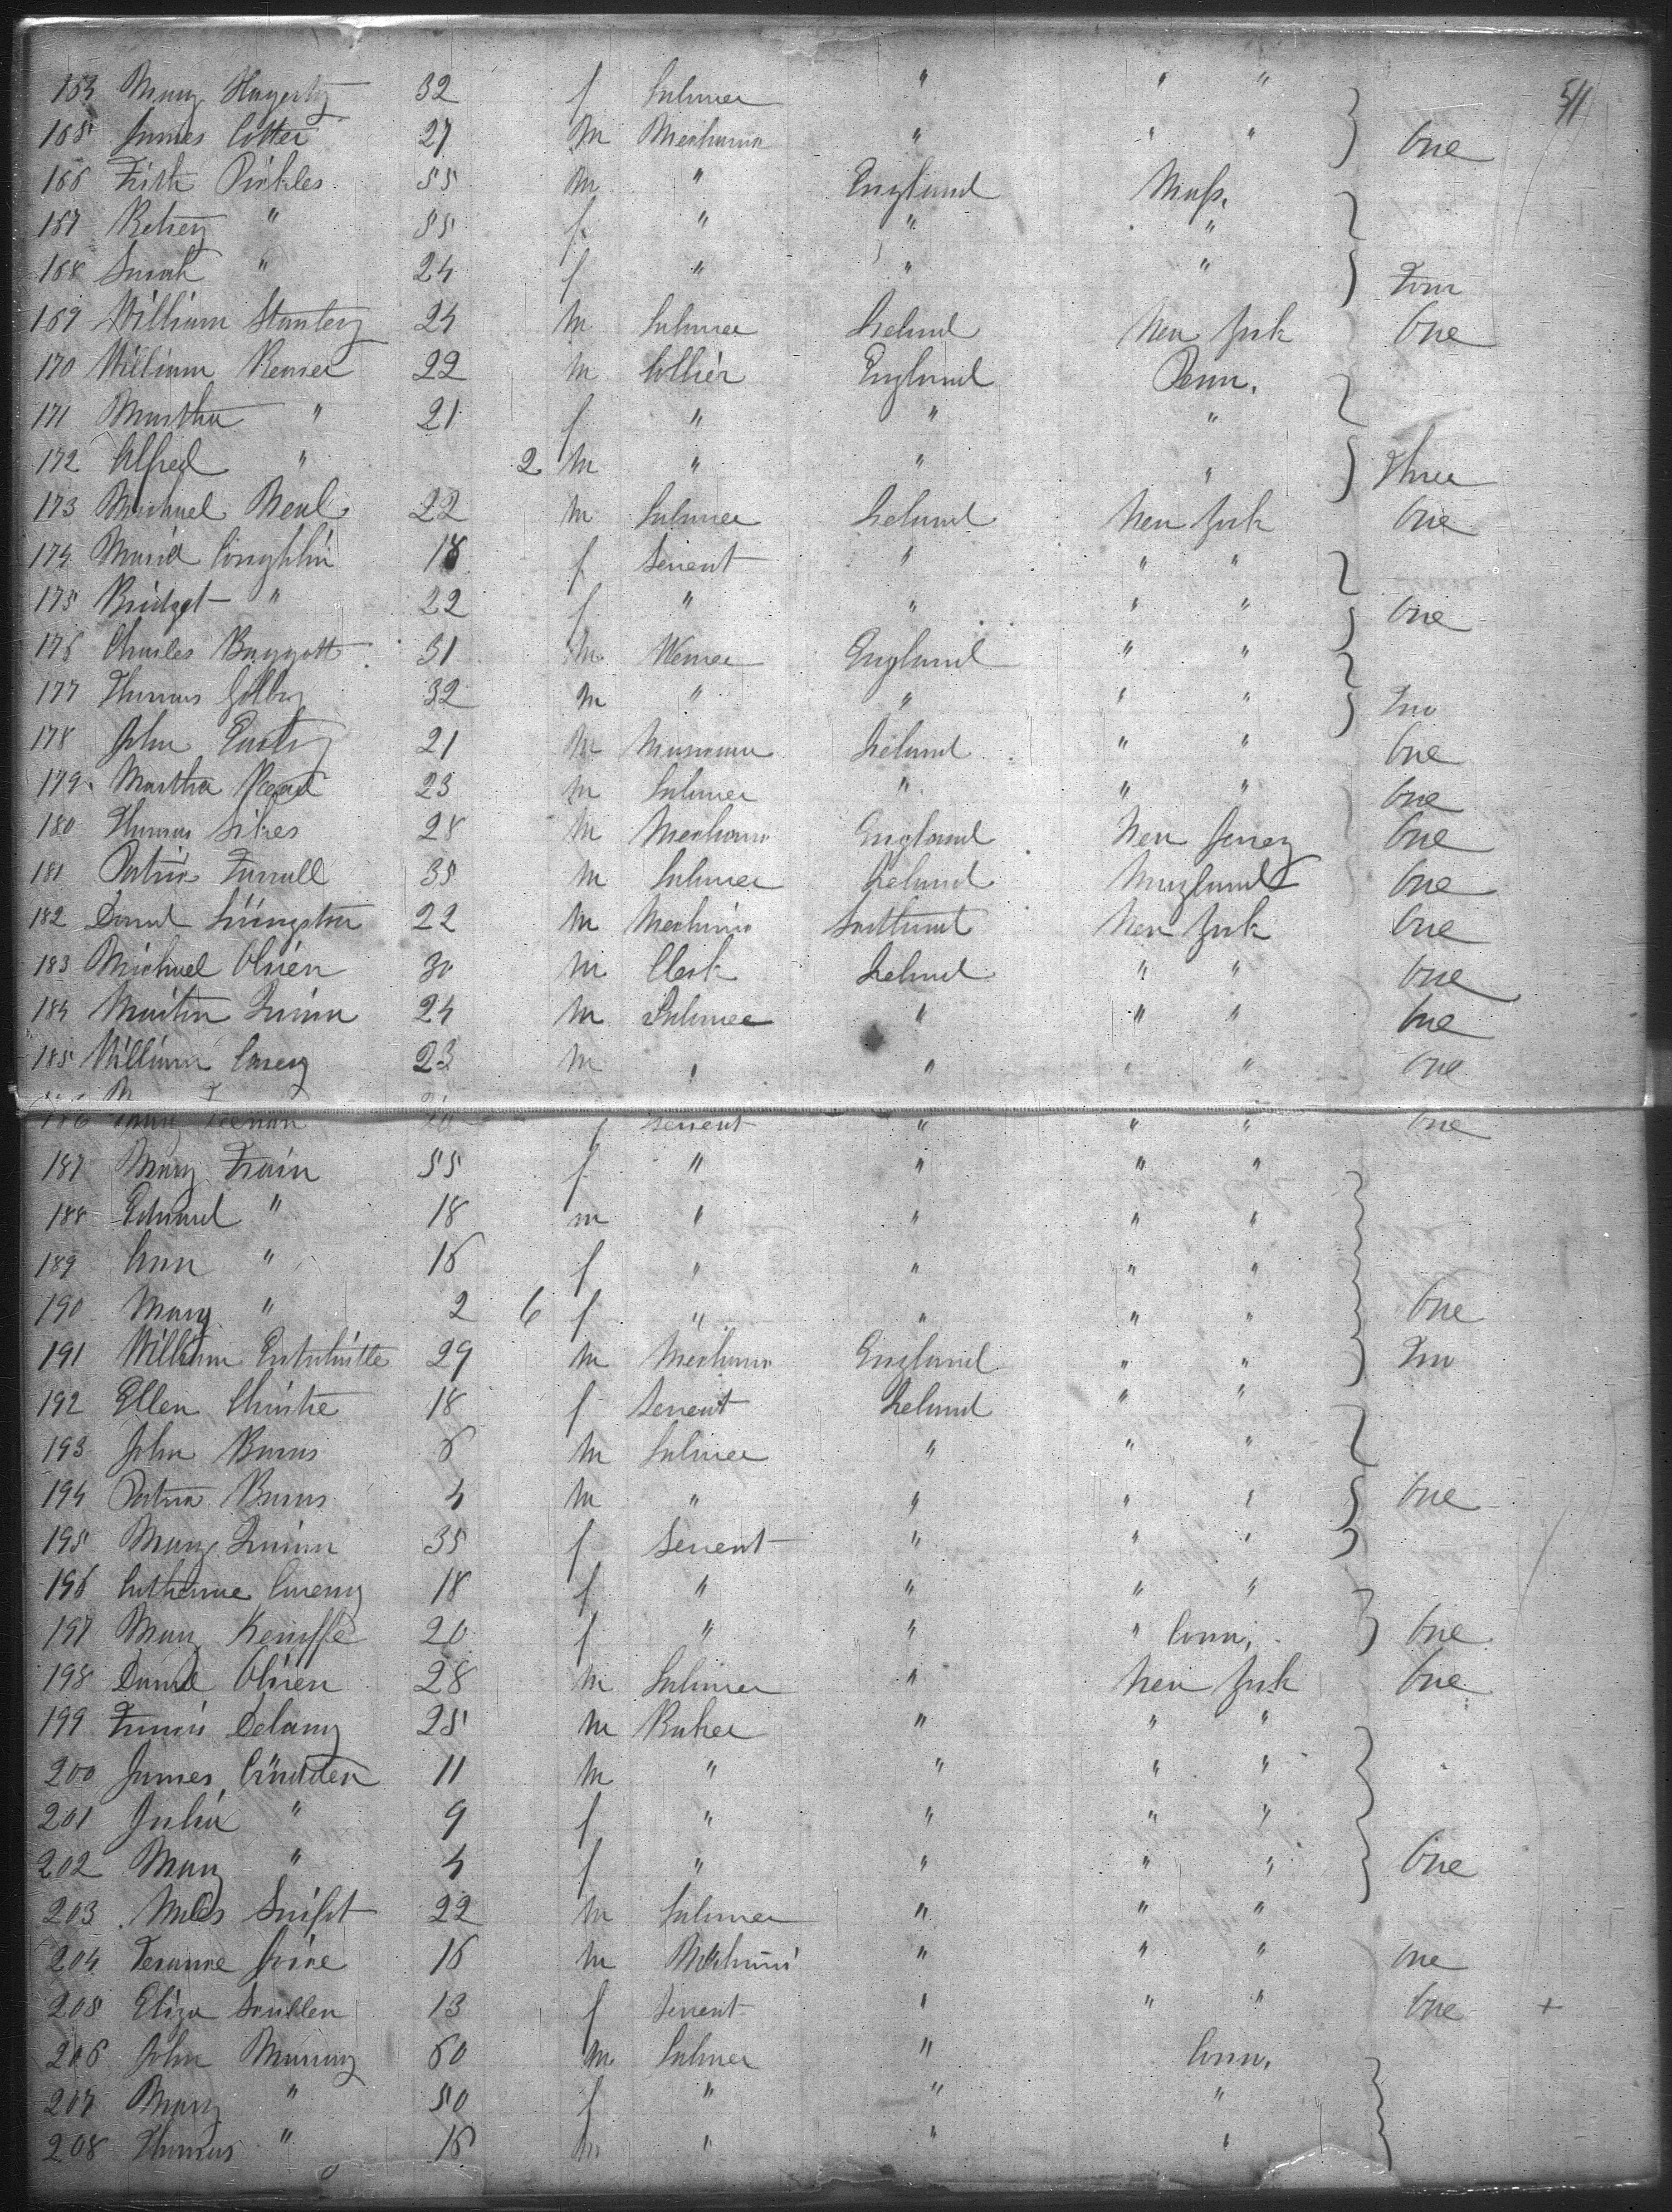 Mary Hagerty 32 f Labourer " " "
511
165 James Cotter 27 m Mechanic " " " One
166 Firth Pickles 55 m " England Mass.
167 Betsey " 55 f " " "
168 Sarah " 24 f " " " Four
169 William Stanley 24 m Labourer Ireland New York One
170 William 22 m Collier England Penn.
171 Martha " 21 f " " "
172 Alfred " 2 m " " " Three
173 Michael 22 m Labourer Ireland New York One
174 Maria Coughlin 18 f Servent " " "
175 Bridget " 22 f " " " " One
176 Charles Baggott 31 m England " "
177 Thomas 32 m " " " " Two
178 John 21 m Ireland " " One
179 Martha Read 23 m Labourer " " " One
180 Thomas Sikes 28 m Mechanic England New Jersey One
181 Patric Farrall 35 m Labourer Ireland Maryland One
182 Livingston 22 m Mechanic Scotland New York One
183 Michael OBrien 30 m Clerk Ireland " " One
184 Martin Quinn 24 m Labourer " " " One
185 William Carey 23 m " " " " One
186 f Servent " " " One
187 Mary 55 f " " " "
188 Edward " 18 m " " " "
189 Ann " 16 f " " " "
190 Mary " 2 6 f " " " " One
191 William 29 m Mechanic England " " Two
192 Ellen Christie 18 f Servent Ireland " "
193 John Burns 6 m Labourer " " "
194 Patrick Burns 4 m " " " " One
195 Mary Quinn 35 f Servent " " "
196 Catherine 18 f " " " "
197 Mary 20 f " " " Conn. One
198 Daniel OBrien 28 m Labourer " New York One
199 Francis Delany 25 m Baker " " "
200 James 11 m " " " "
201 Julia " 9 f " " " "
202 Mary " 4 f " " " " One
203 Miles Swift 22 m Labourer " " "
204 16 m Mechanic " " " One
205 Eliza Scullen 13 f Servent " " " One +
206 John 60 m Labourer " Conn.
207 Mary " 50 f " " "
208 Thomas " 16 m " " "